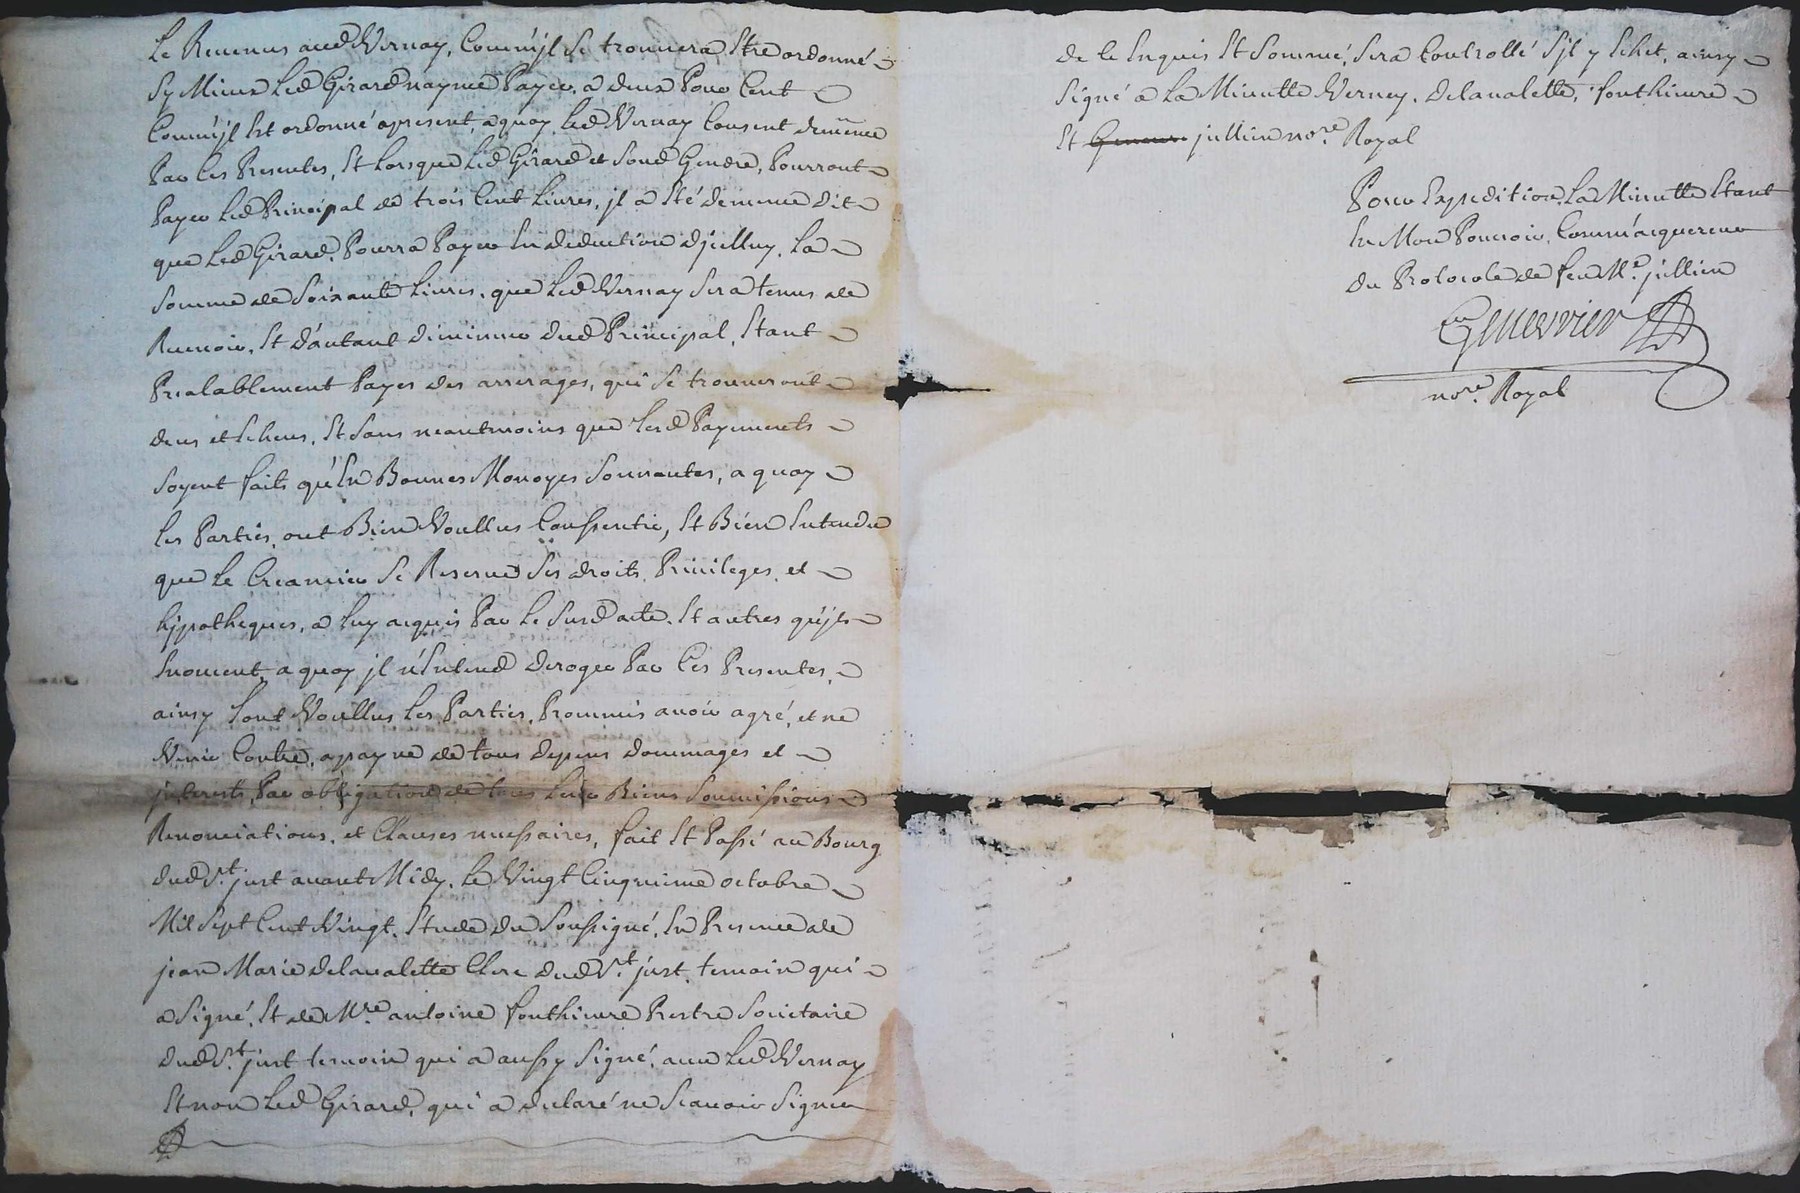 Le Revenus aud Vernay, Comm'jl se trouvera Etre ordonné
Sy Mieux Led Girard nayme Payer, a deux Pour Cent
Comm'jl Est ordonné apresent, a quoy Led Vernay Consent demême
Par Ces Presentes, Et Lorsque Led Girard et Soud Gendre, Pourront
Payer Led Principal de trois Cent Livres, jl a Eté demême dit
que Led Girard, Pourra Payer En deduction d'jcelluy, La
Somme de Soixante Livres, que Led Vernay Sera tenus de
Recevoir, Et d'autant diminuer dud Principal, Etant
Prealablement Payes des arrerages, qui Se trouveront
deus et Echeus, Et Sans neantmoins que Lesd Payements
Soyent faits qu'En Bonnes Monoyes Sonnantes, a quoy
Les Parties, ont Bien Voullus Conssentir, Et Bien Entendu
que Le Creancier Se Reserve Ses droits, Privileges, et
hypotheques, a Luy acquis Par Le Susd acte, Et autres qu'jls
Enoncent, a quoy jl n'Entend deroger Par Ces Presentes,
ainsy Lont Voullus Les Parties, Prommis avoir agré, et ne
Venir Contre, apayne de tous depens dommages et
jnterests, Par obligation de tous Leur Biens Soumissions
Renonciations, et Clauses necessaires, fait Et Passé au Bourg
dud St. just avant Midy, Le Vingt Cinquieme octobre
Mil Sept Cent Vingt, Etude du Soussigné, En Presence de
jean Marie delavalette Clerc dud St. just, temoin qui
a Signé, Et de Mre antoine fonthieure Prestre Societaire
dud St. just temoin qui a aussy Signé, avec Led Vernay
Et non Led Girard, qui a declaré ne Scavoir Signer
de Ce Enquis Et Sommé, Sera Controllé Sjl y Echet, ainsy
Signé a La Minutte Vernay, Delavalette, fonthieure
Et jullien nore. Royal
Pour Expedition, La Minutte Etant
En Mon Pouvoir, Comm'acquereur
du Protocole de feu Me. jullien
Genevrier
nore. Royal